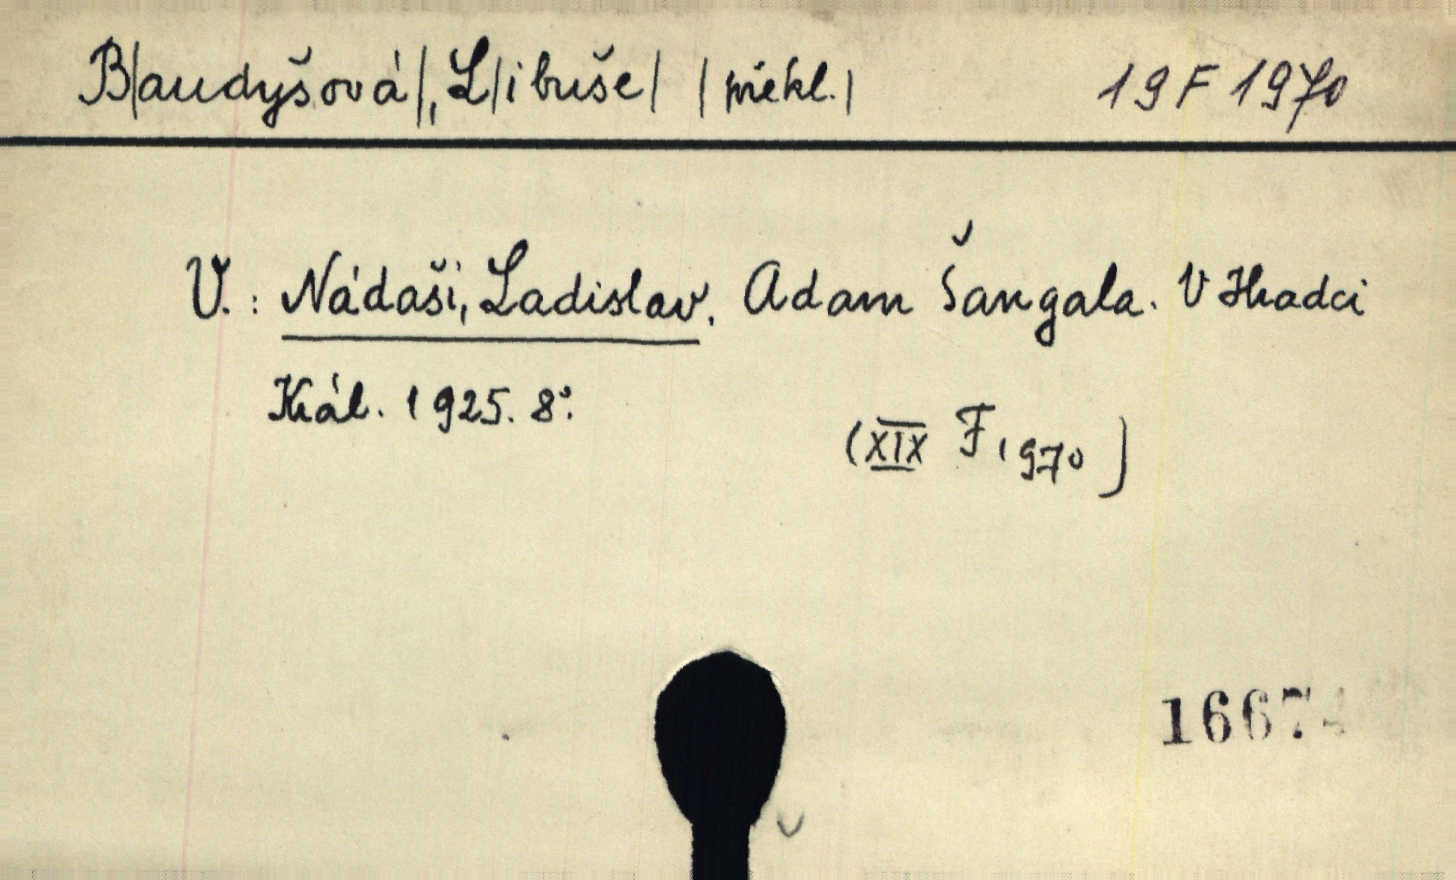 B|audyšová|, L|ibuše| |překl.| 19 F 1970
V.: Nádaši, Ladislav, Adam Šangala. V Hradci
Král. 1925. 8°.
(XIX F 1970)